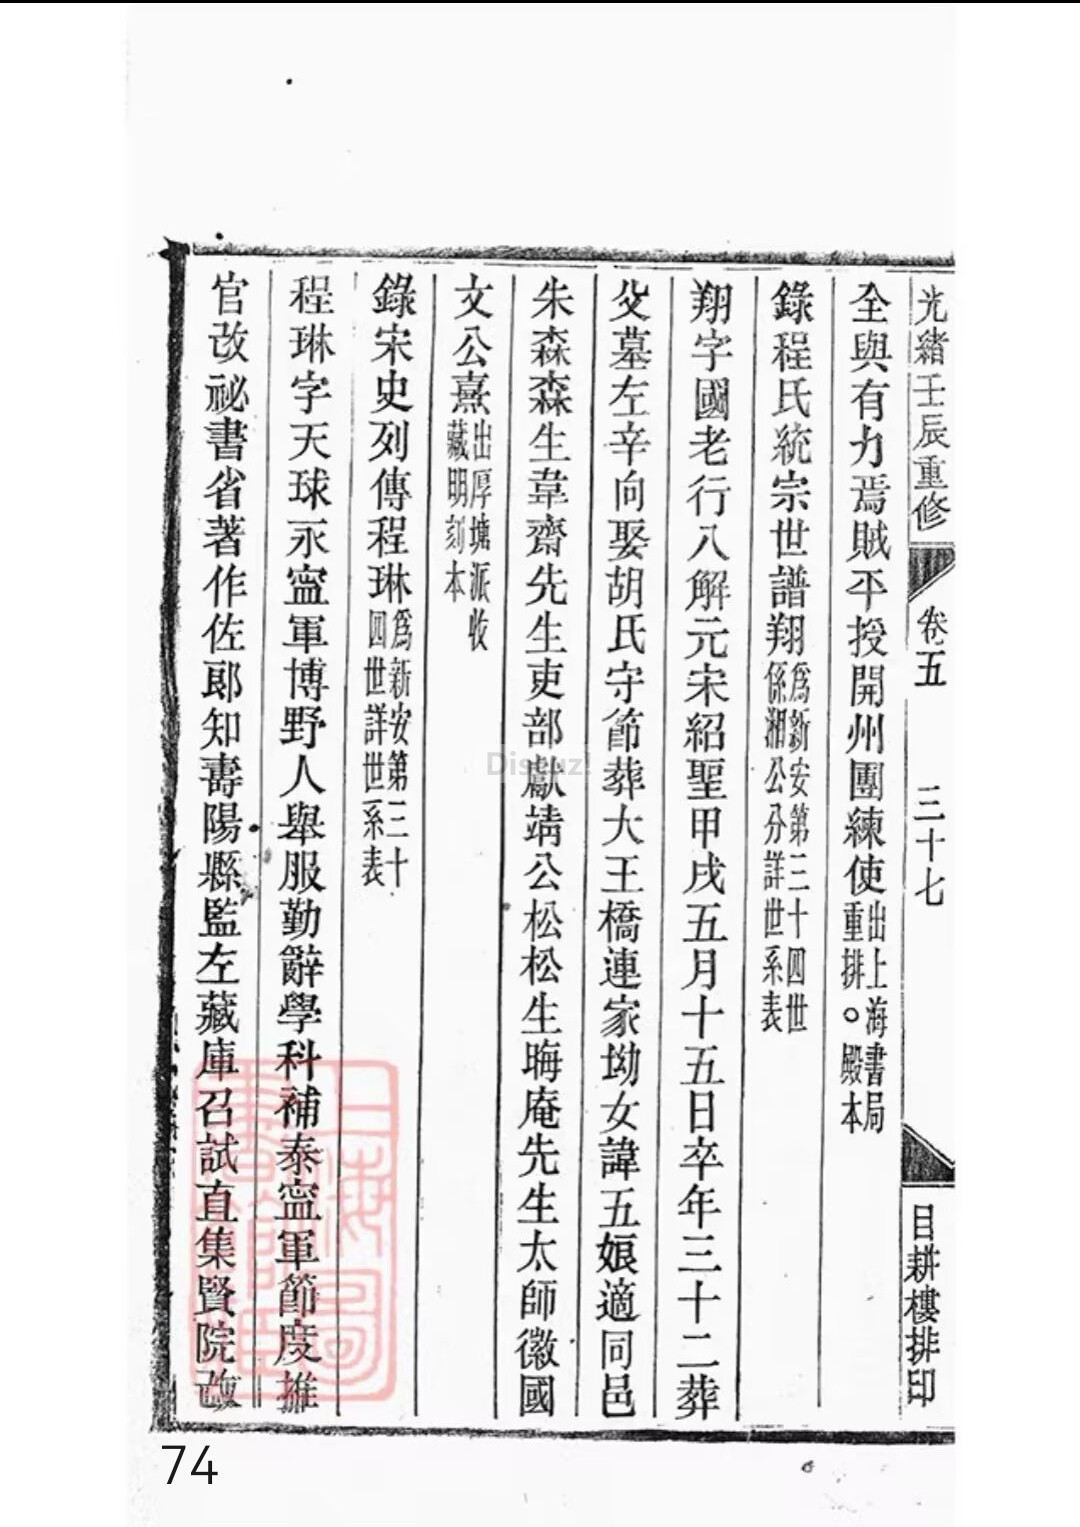 光緒壬辰重修 卷五 三十七 目耕樓排印
全與有力焉賊平授開州團練使出上海書局重排○殿本
錄程氏統宗世譜翔為新安第三十四世係湘公分詳世系表
翔字國老行八解元宋紹聖甲戌五月十五日卒年三十二葬
父墓左辛向娶胡氏守節葬大王橋連家坳女諱五娘適同邑
朱森森生韋齋先生吏部獻靖公松松生晦庵先生太師徽國
文公熹出厚塘派收藏明刻本
錄宋史列傳程琳為新安第三十四世詳世系表
程琳字天球永寍軍博野人舉服勤辭學科補泰寍軍節度推
官改祕書省著作佐郎知壽陽縣監左藏庫召試直集賢院改
上海圖書館藏
Discuz!
74